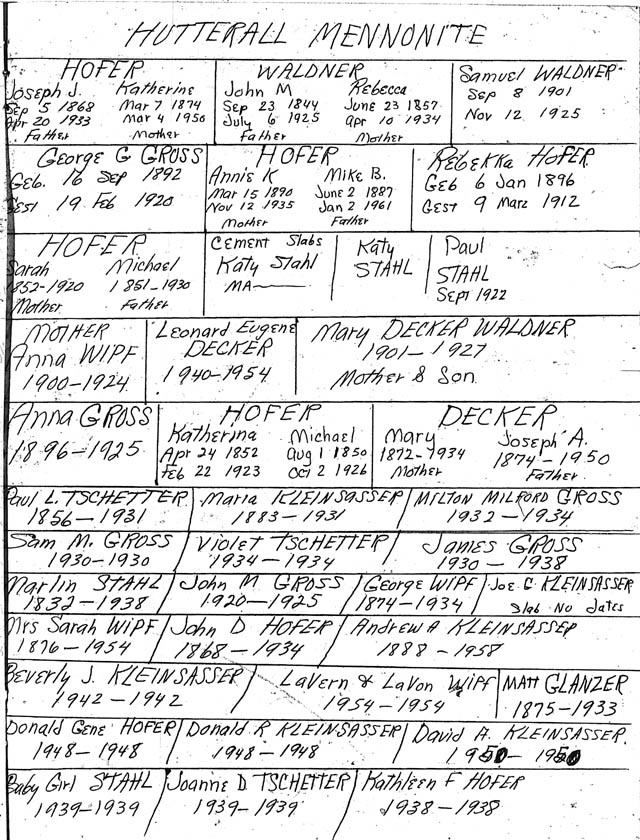 HUTTERALL MENNONITE
HOFER
Joseph J. Katherine
Sep 5 1868 Mar 7 1874
Apr 20 1933 Mar 4 1950
Father Mother
WALDNER
John M Rebecca
Sep 23 1844 June 23 1857
July 6 1925 Apr 10 1934
Father Mother
Samuel WALDNER
Sep 8 1901
Nov 12 1925
George G GROSS
GEB. 16 Sep 1892
GEST 19 Feb 1920
HOFER
Annie K Mike B.
Mar 15 1890 June 2 1887
Nov 12 1935 Jan 2 1961
Mother Father
REBEKKA HOFER
GEB 6 Jan 1896
GEST 9 Marz 1912
HOFER
Sarah Michael
1852-1920 1851-1930
Mother Father
Cement Slabs
Katy Stahl
MA
Katy
STAHL
Paul
STAHL
Sept 1922
MOTHER
Anna WIPF
1900-1924
Leonard Eugene
DECKER
1940-1954
Mary DECKER WALDNER
1901-1927
Mother & Son
Anna GROSS
1896-1925
HOFER
Katherina Michael
Apr 24 1852 Aug 1 1850
Feb 22 1923 Oct 2 1926
DECKER
Mary Joseph A.
1872-1934 1874-1950
Mother Father
Paul L. TSCHETTER
1856-1931
Maria KLEINSASSER
1883-1931
MILTON MILFORD GROSS
1932-1934
Sam M. GROSS
1930-1930
Violet TSCHETTER
1934-1934
James GROSS
1930-1938
Marlin STAHL
1832-1938
John M GROSS
1920-1925
George WIPF
1874-1934
Joe G KLEINSASSER
Slab No dates
Mrs Sarah WIPF
1876-1954
John D HOFER
1868-1934
Andrew A KLEINSASSER
1888-1958
Beverly J. KLEINSASSER
1942-1942
LaVern & LaVon Wipf
1954-1954
MATT GLANZER
1875-1933
Donald Gene HOFER
1948-1948
Donald R KLEINSASSER
1948-1948
David A. KLEINSASSER
1950-1950
Baby Girl STAHL
1939-1939
Joanne D. TSCHETTER
1939-1939
Kathleen F HOFER
1938-1938